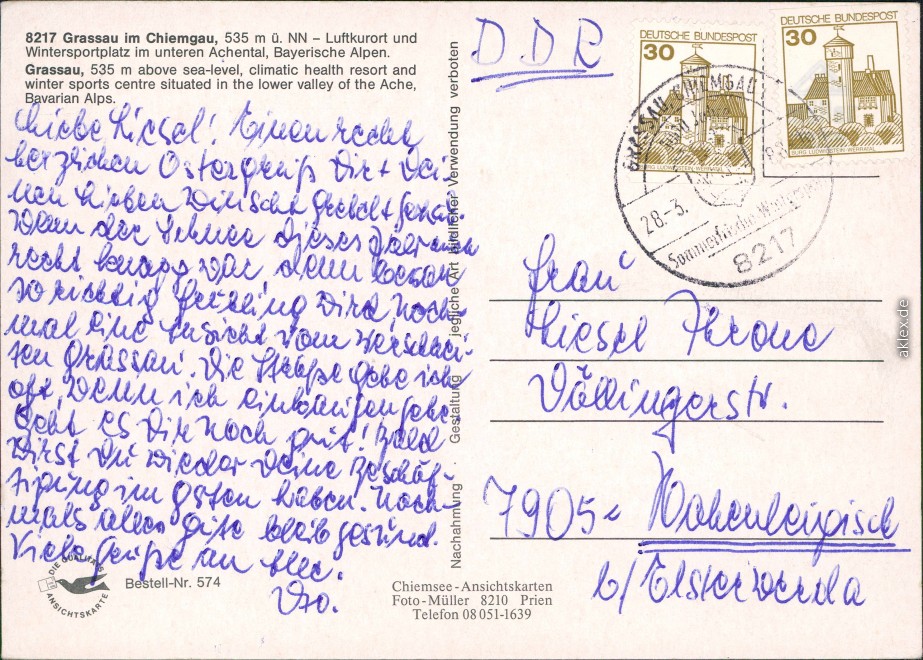 8217 Grassau im Chiemgau, 535 m ü. NN – Luftkurort und
Wintersportplatz im unteren Achental, Bayerische Alpen.
Grassau, 535 m above sea-level, climatic health resort and
winter sports centre situated in the lower valley of the Ache,
Bavarian Alps.
Liebe Liesel! Einen recht
herzlichen Ostergruß Dir + Dei-
nen Lieben wünscht Grete
Wenn der Schnee dieses Jahr auch
recht knapp war denn
so richtig Frühling wird, noch-
mal eine Ansicht vom
ten Grassau. Die Straße gehe ich
oft, wenn ich einkaufen gehe.
Geht es Dir noch gut! Bald
wirst Du wieder Deine Beschäf-
tigung im Garten haben. Noch-
mals alles gute bleib gesund.
Viele Grüße an alle.
DIE QUALITÄTS
ANSICHTSKARTE
Bestell-Nr. 574
Nachahmung Gestaltung jegliche Art bildlicher Verwendung verboten
Chiemsee-Ansichtskarten
Foto-Müller 8210 Prien
Telefon 08051-1639
DDR
DEUTSCHE BUNDESPOST
30
BURG LUDWIGSTEIN·WERRATAL
DEUTSCHE BUNDESPOST
30
BURG LUDWIGSTEIN·WERRATAL
GRASSAU, CHIEMGAU
28.-3.
8217
Frau
Liesel Throne
Döllingerstr.
7905
b/ Elsterwerda
aklex.de